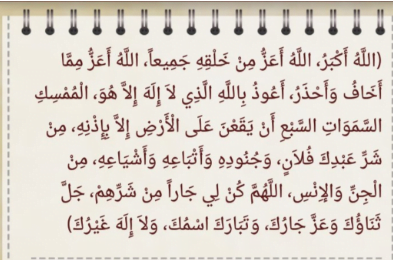 (اللَّهُ أَكْبَرُ، اللَّهُ أَعَزُّ مِنْ خَلْقِهِ جَمِيعاً، اللَّهُ أَعَزُّ مِمَّا
أَخَافُ وَأَحْذَرُ، أَعُوذُ بِاللَّهِ الَّذِي لاَ إِلَهَ إِلاَّ هُوَ، الْمُمْسِكِ
السَّمَوَاتِ السَّبْعِ أَنْ يَقَعْنَ عَلَى الْأَرْضِ إِلاَّ بِإِذْنِهِ، مِنْ
شَرِّ عَبْدِكَ فُلاَنٍ، وَجُنُودِهِ وَأَتْبَاعِهِ وَأَشْيَاعِهِ، مِنَ
الْجِنِّ وَالإِنْسِ، اللَّهُمَّ كُنْ لِي جَاراً مِنْ شَرِّهِمْ، جَلَّ
ثَنَاؤُكَ وَعَزَّ جَارُكَ، وَتَبَارَكَ اسْمُكَ، وَلاَ إِلَهَ غَيْرُكَ)